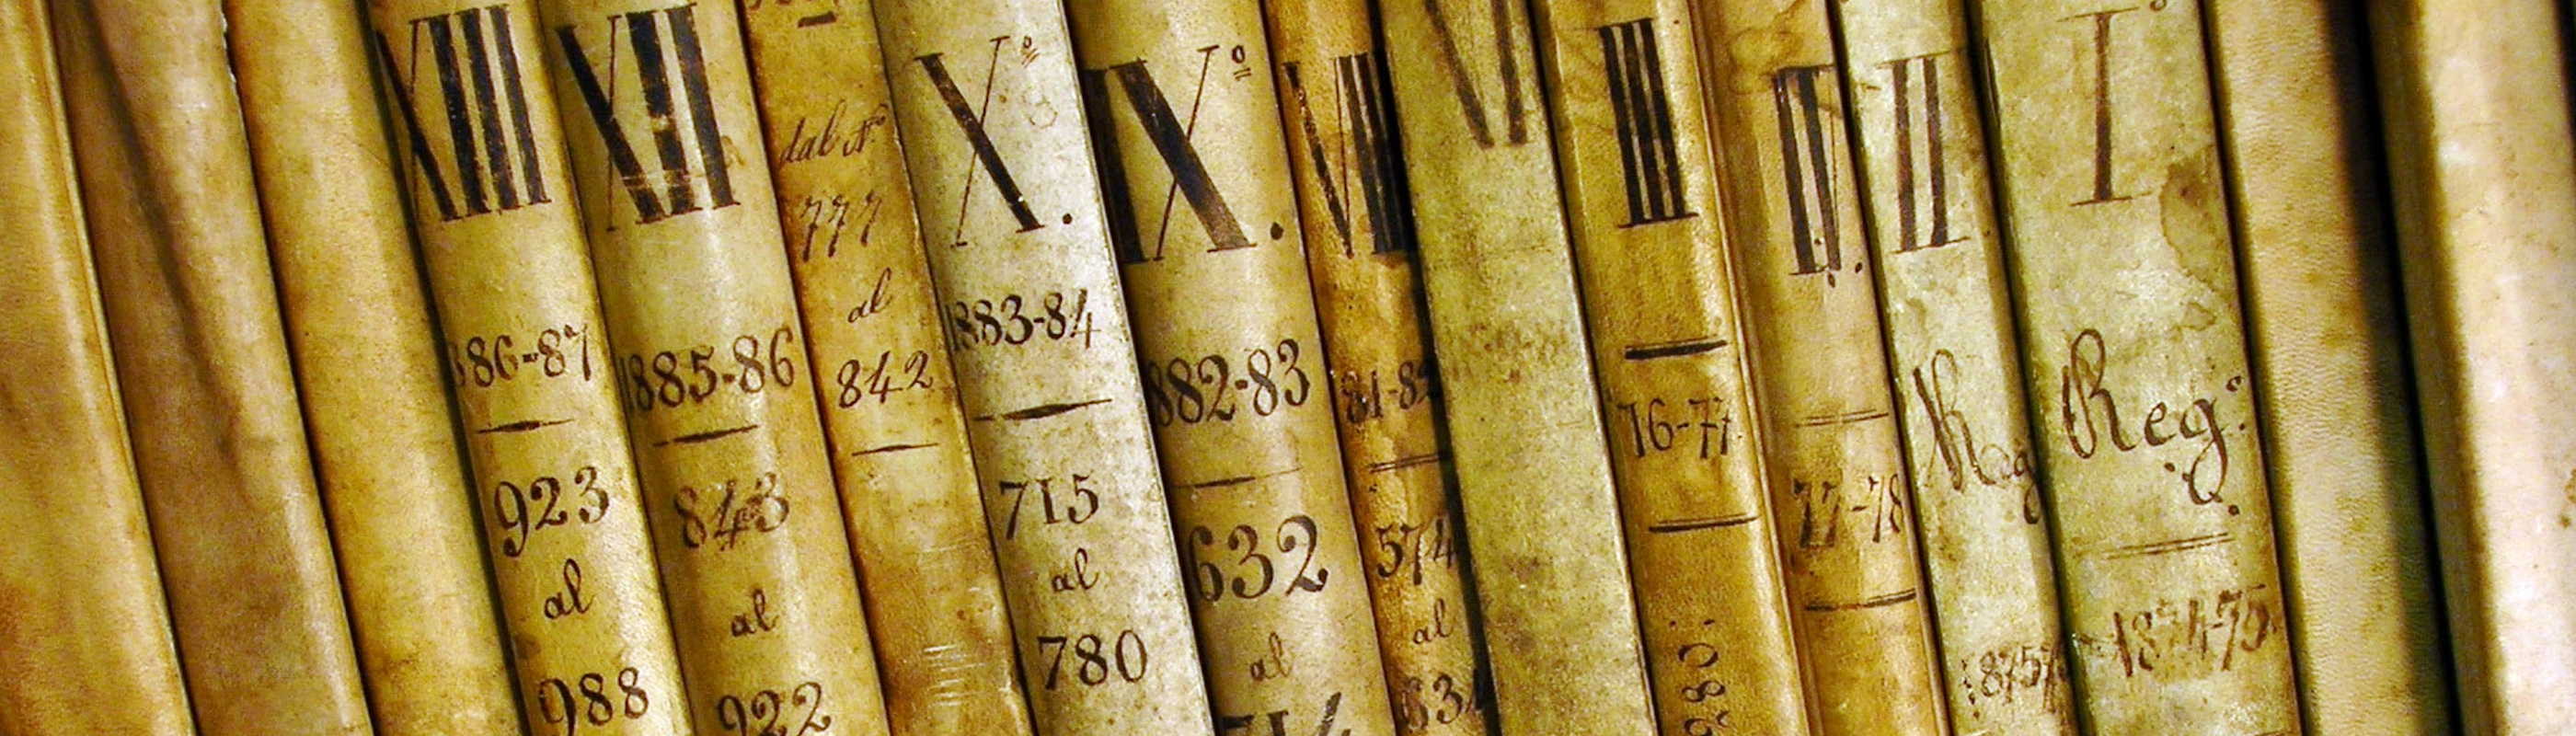 XIII
86-87
923
al
988
XII
1885-86
843
al
922
dal N.º
777
al
842
X.º
1883-84
715
al
780
IX.º
882-83
632
al
714
VIII
81-82
574
al
634
III
76-77
280:
IV.
77-78
II
Reg
1875
I.º
Reg:
1874-75